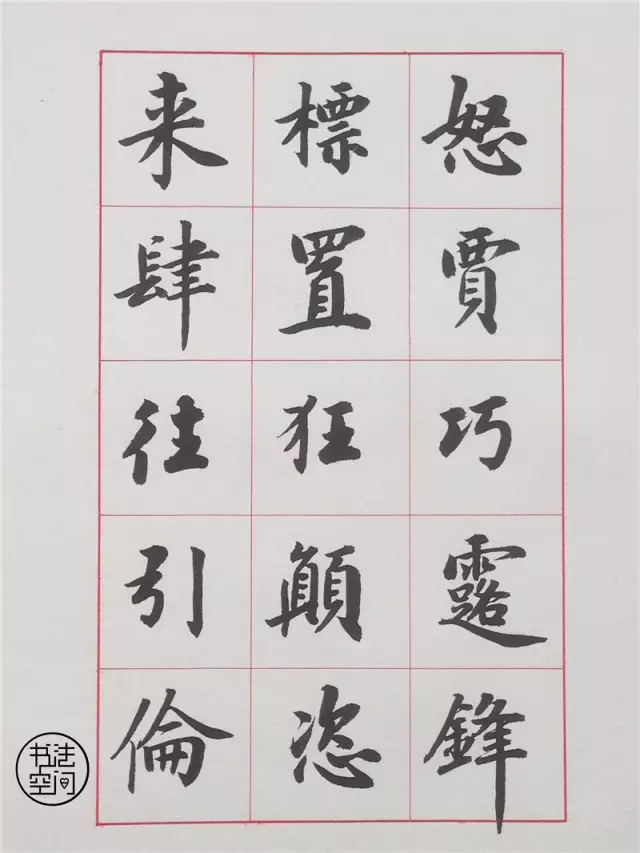 怒賈巧露鋒
標置狂顛恣
来肆往引倫
书法
空间